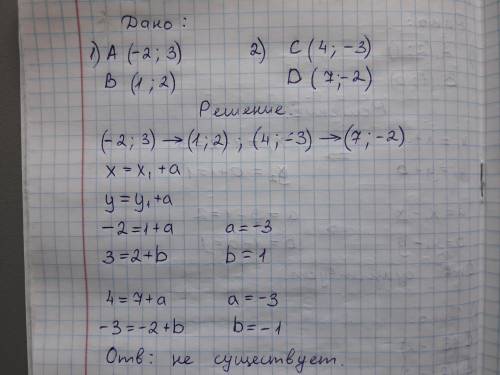 Дано:
1) A (-2; 3) 2) C (4; -3)
B (1; 2) D (7; -2)
Решение.
(-2; 3) → (1; 2) ; (4; -3) → (7; -2)
x = x₁ + a
y = y₁ + a
-2 = 1 + a a = -3
3 = 2 + b b = 1
4 = 7 + a a = -3
-3 = -2 + b b = -1
Отв: не существует.